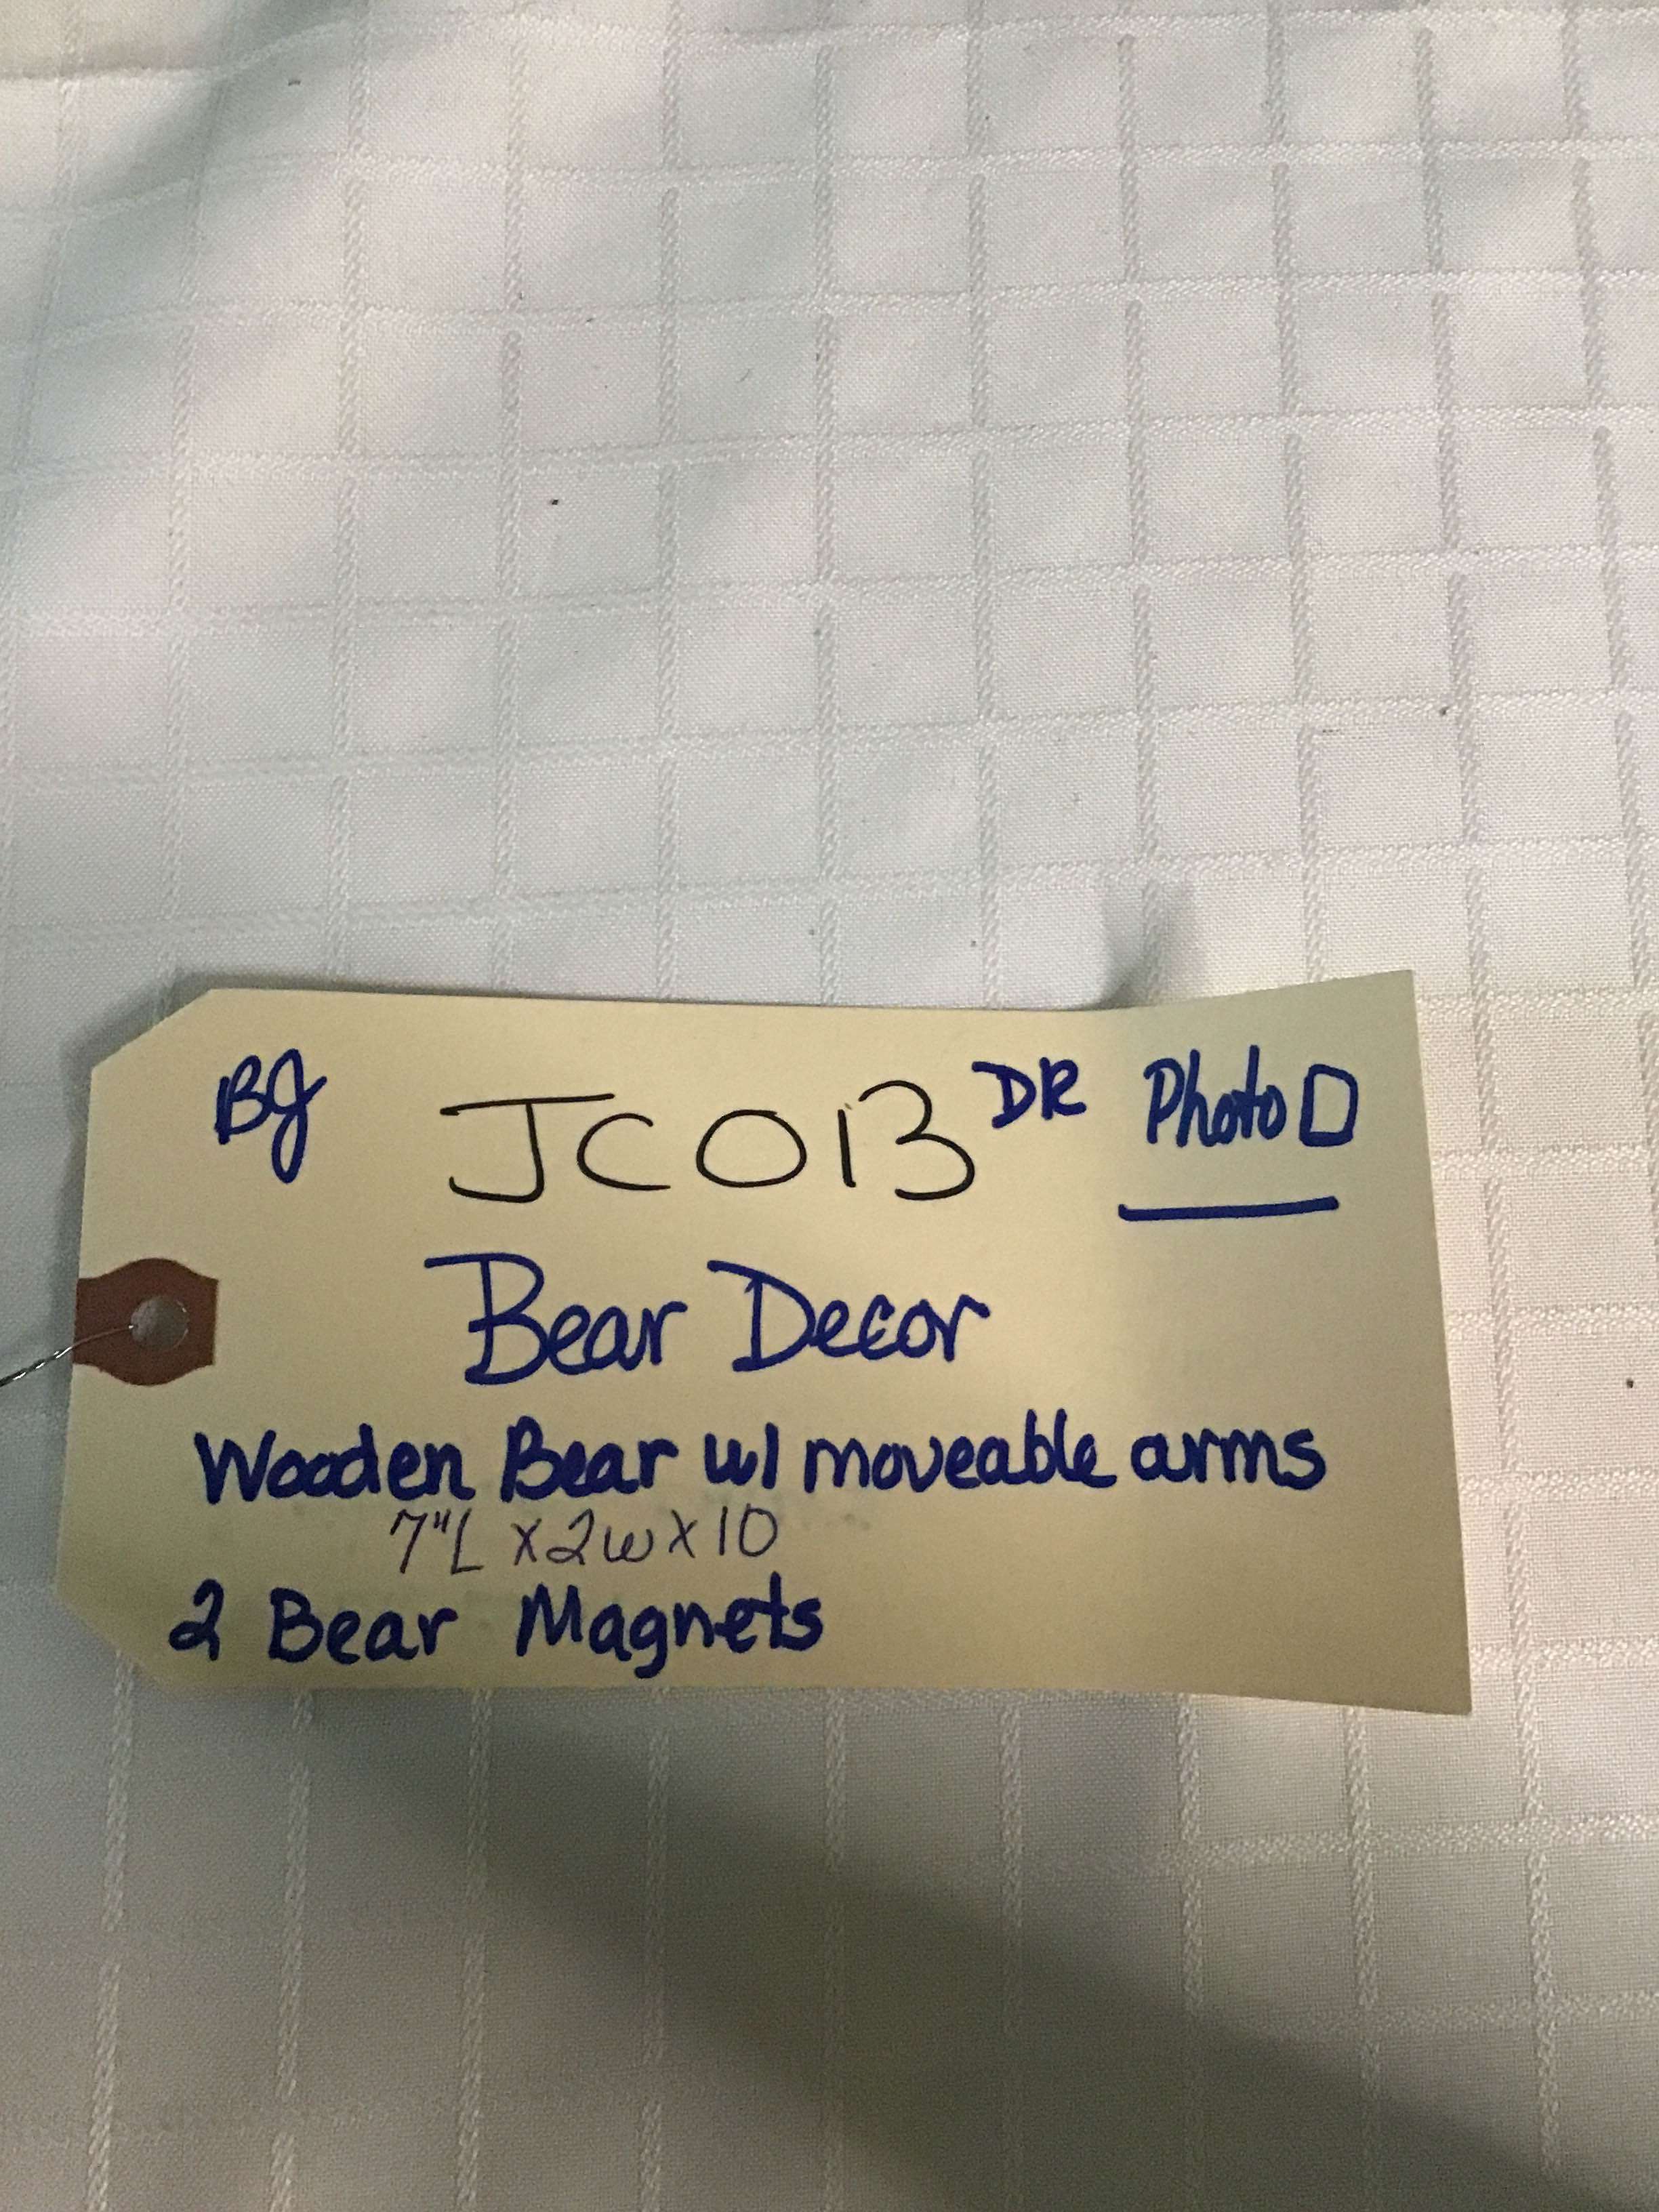 BJ JC013 DR Photo □
Bear Decor
Wooden Bear w/ moveable arms
7"L x 2w x 10
2 Bear Magnets